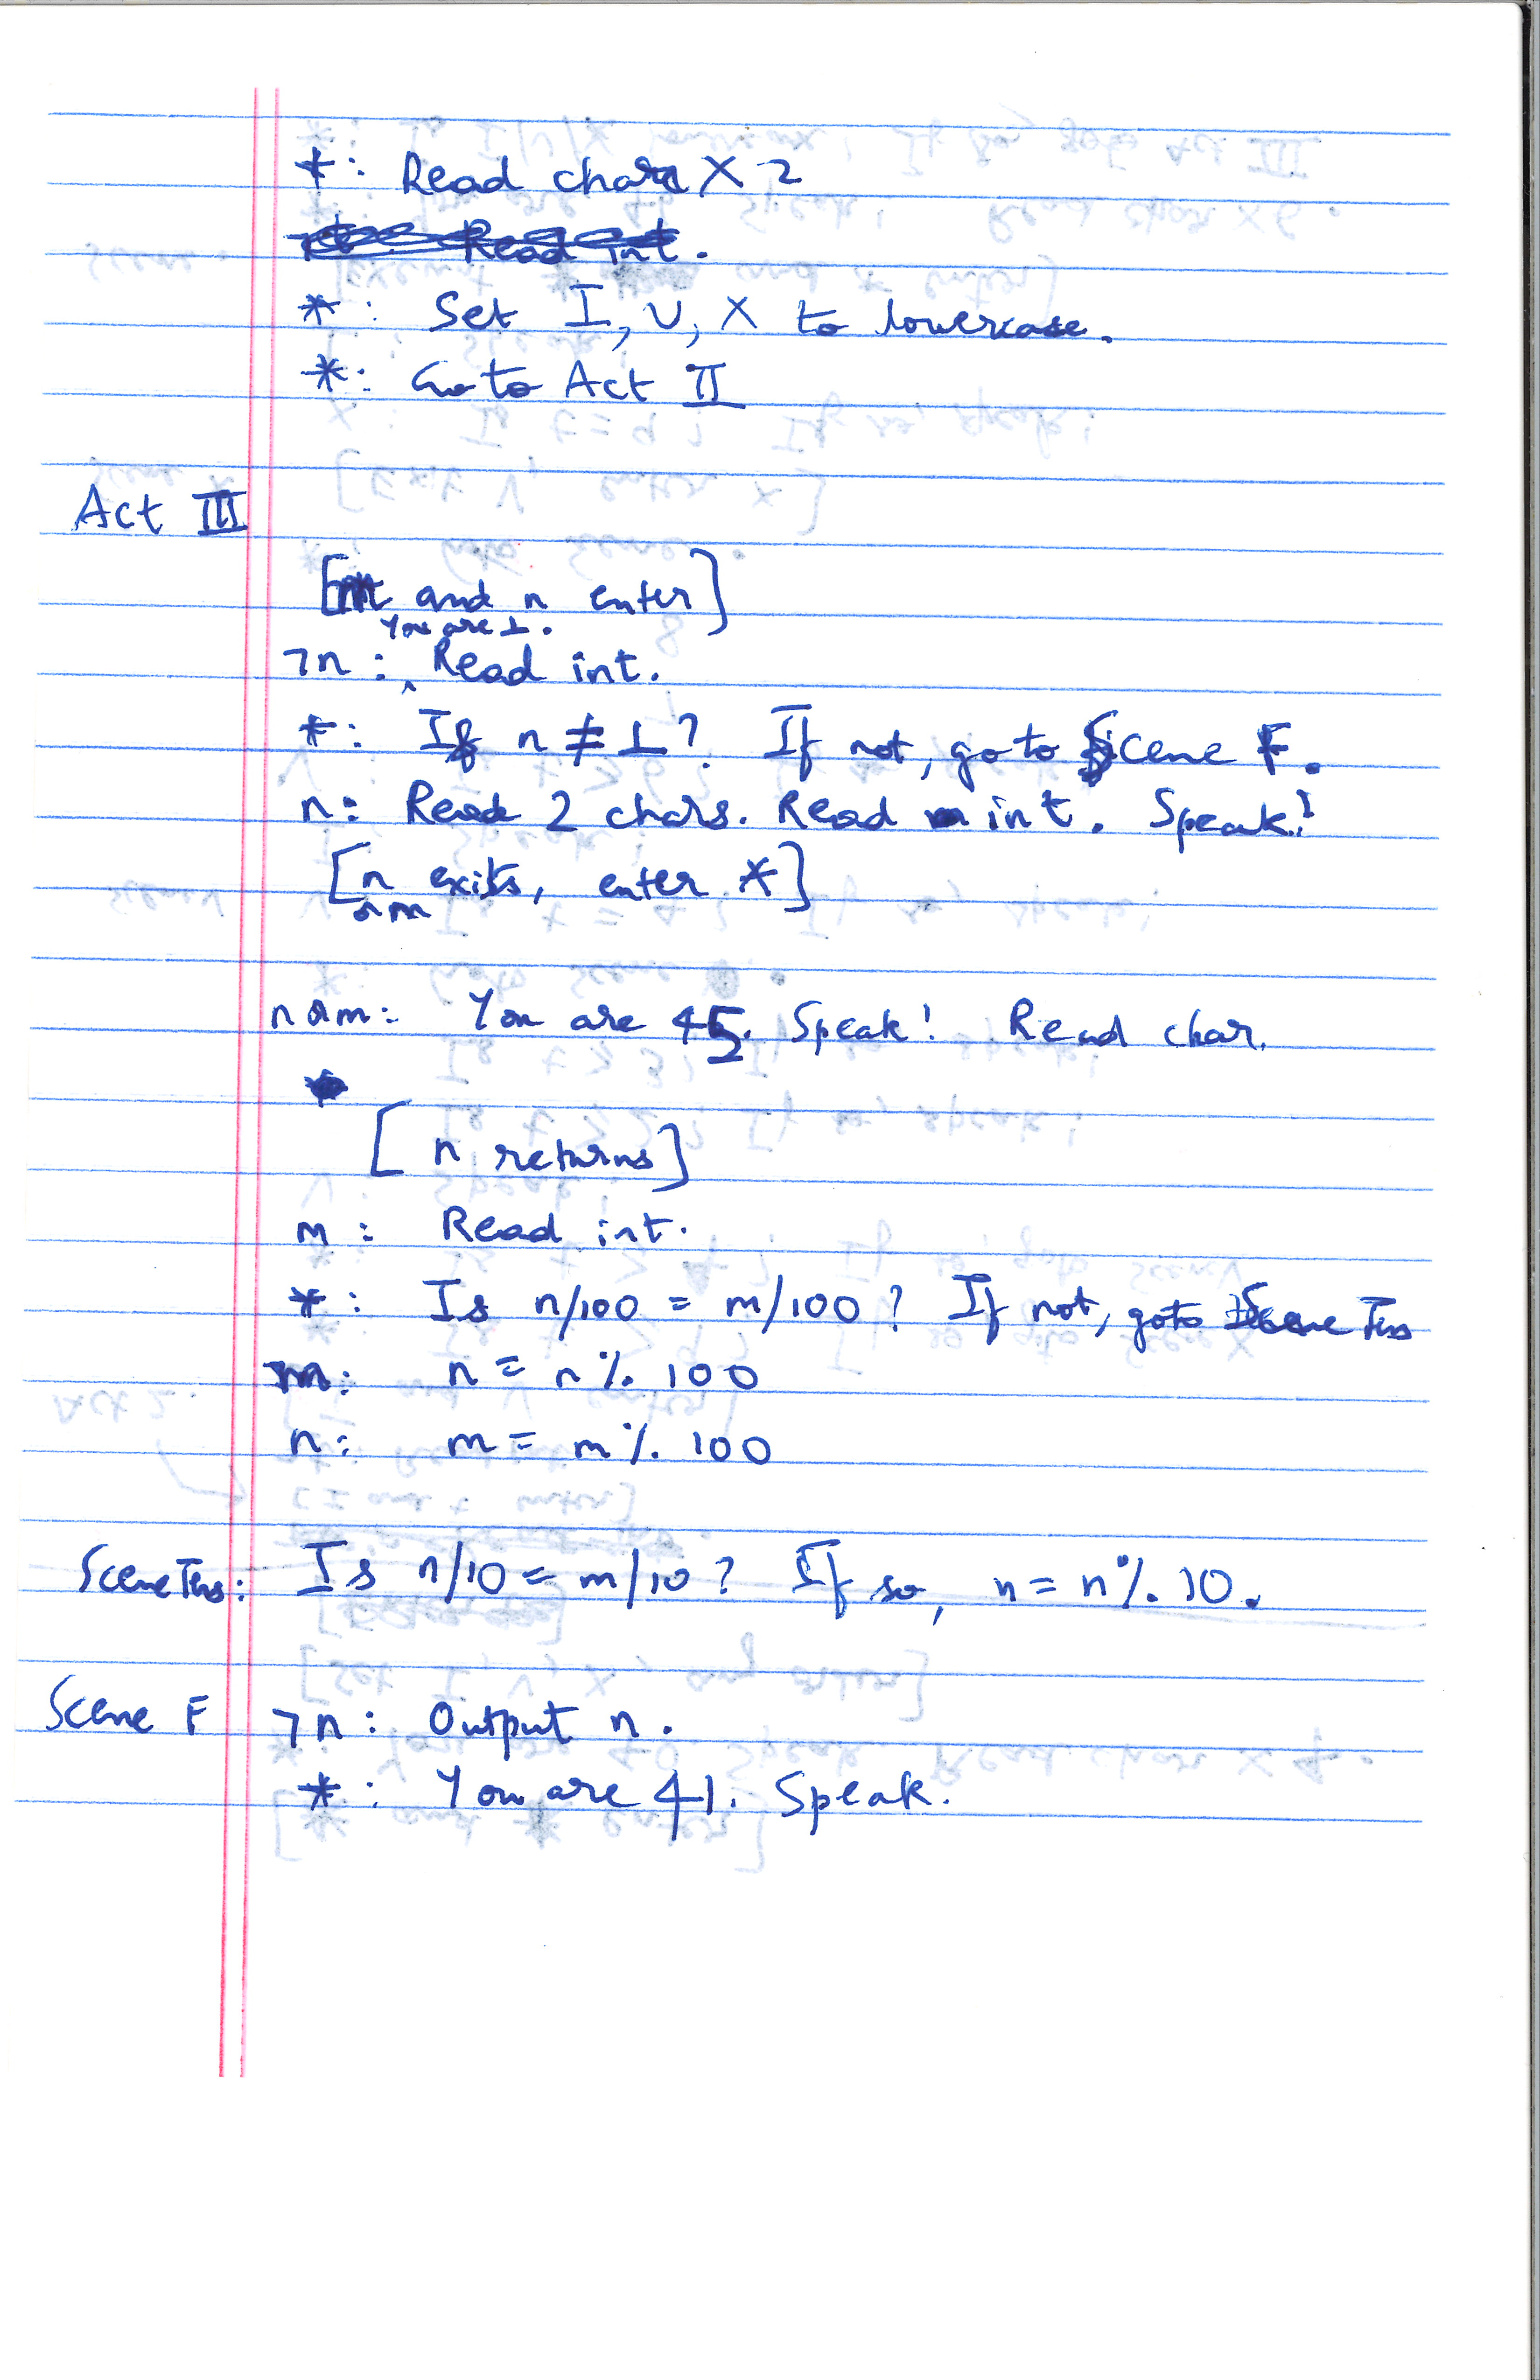 *: Read char X 2
Read int.
*: Set I, V, X to lowercase.
*: Go to Act II
Act III
[m and n enter]
You are ⊥.
¬n: Read int.
*: If n ≠ ⊥? If not, go to Scene F.
n: Read 2 chars. Read int. Speak!
[n exits, enter *]
or m
n or m: You are 45. Speak! Read char.
[n returns]
m: Read int.
*: Is n/100 = m/100? If not, goto Scene Tens
m: n = n % 100
n: m = m % 100
Scene Tens: Is n/10 = m/10? If so, n = n % 10.
Scene F ¬n: Output n.
*: You are 41. Speak.